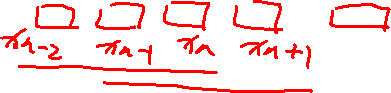 xn-2 xn-1 xn xn+1